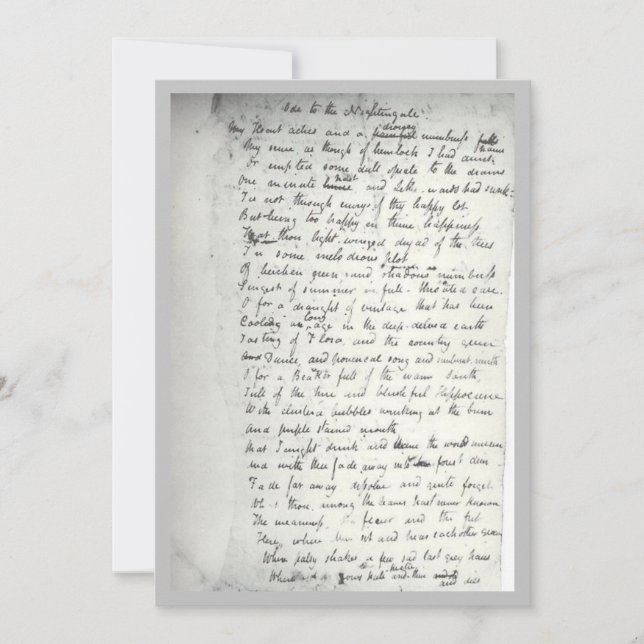 Ode to the Nightingale.
My Heart aches and a drowsy painful numbness falls pains
My sense, as though of hemlock I had drunk
Or emptied some dull opiate to the drains
One minute hence past and Lethe-wards had sunk
Tis not through envy of thy happy lot
But being too happy in thine happiness
That thou light-winged dryad of the trees
In some melodious plot
Of beechen green, and shadows numberless
Singest of summer in full-throated ease.
O for a draught of vintage that has been
Cooling an long age in the deep-delved earth
Tasting of Flora, and the country green
And Dance, and provencal song and sunburnt mirth
O for a Beaker full of the warm South,
Full of the true and blushful Hippocrene
With cluster'd bubbles winking at the brim
And purple stained mouth
That I might drink and leave the world unseen
And with thee fade away into the forest dim
Fade far away dissolve and quite forget
What thou among the leaves hast never known
The weariness, the fever and the fret
Here, where men sit and hear each other groan
Where palsy shakes a few sad last grey hairs
Where youth grows pale and thin and old and dies